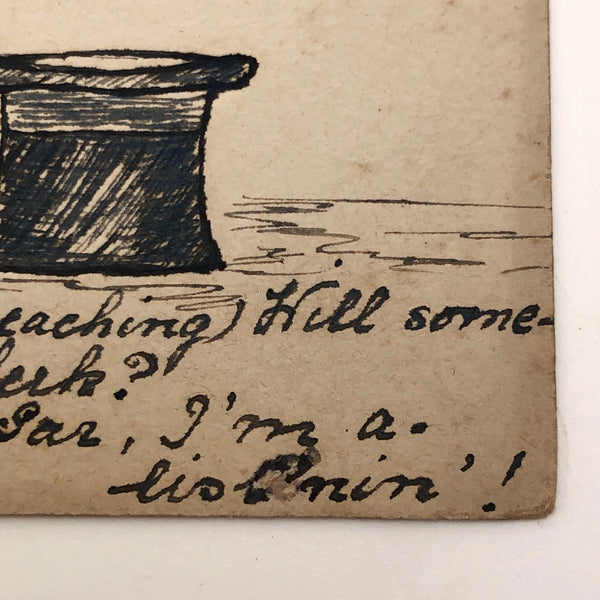 eaching) Will some-
lerk?
Sar, I'm a-
list'nin'!